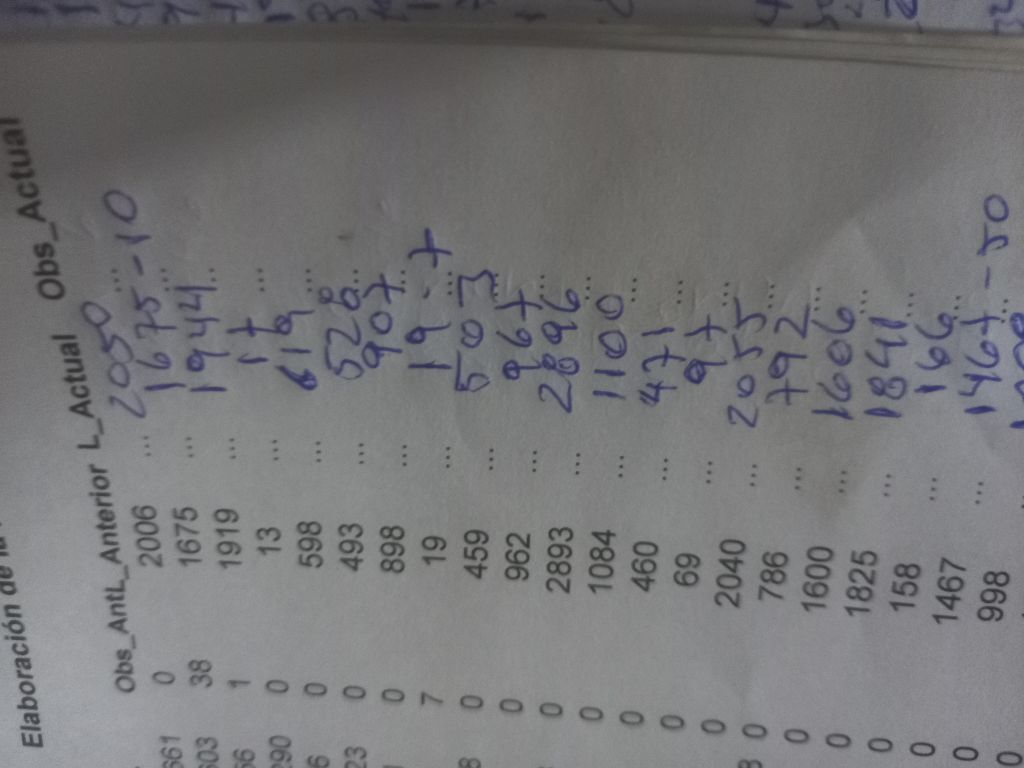 Elaboración de
Obs_AntL_Anterior L_Actual Obs_Actual
661 0 2006 ... 2050 ...
603 38 1675 ... 1675 - 10 ...
66 1 1919 ... 1944 ...
290 0 13 ... 17 ...
6 0 598 ... 619 ...
23 0 493 ... 528 ...
0 898 ... 907 ...
7 19 ... 19 - 7 ...
8 0 459 ... 503 ...
0 962 ... 967 ...
0 2893 ... 2896 ...
0 1084 ... 1100 ...
0 460 ... 471 ...
0 69 ... 97 ...
0 2040 ... 2055 ...
8 0 786 ... 792 ...
0 1600 ... 1606 ...
0 1825 ... 1841 ...
0 158 ... 166 ...
0 1467 ... 1467 - 50 ...
0 998